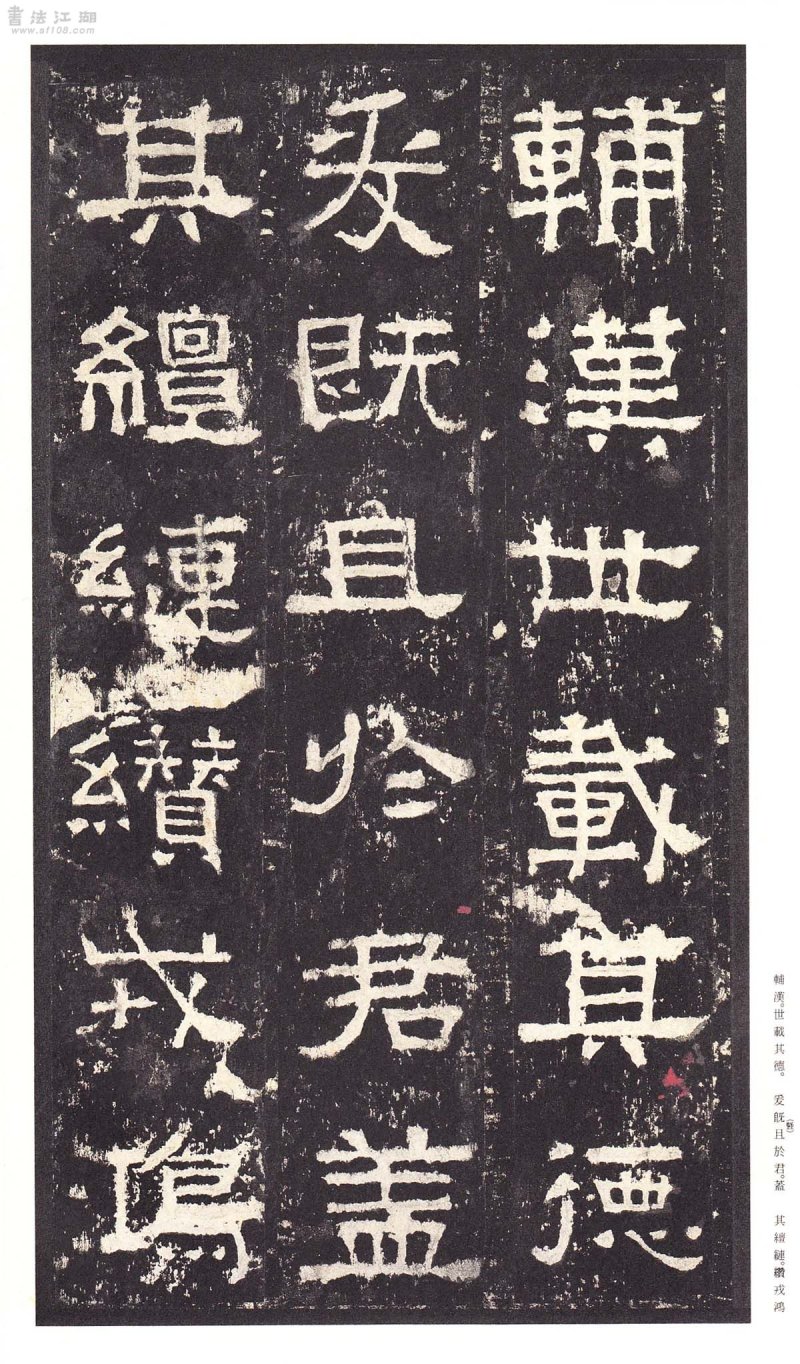 書法江湖
www.af108.com
輔漢世載其德
爰既且於君蓋
其繵縺纘戎鴻
輔漢。世載其德。 爰既(曁)且於君。蓋 其繵縺。纘戎鴻